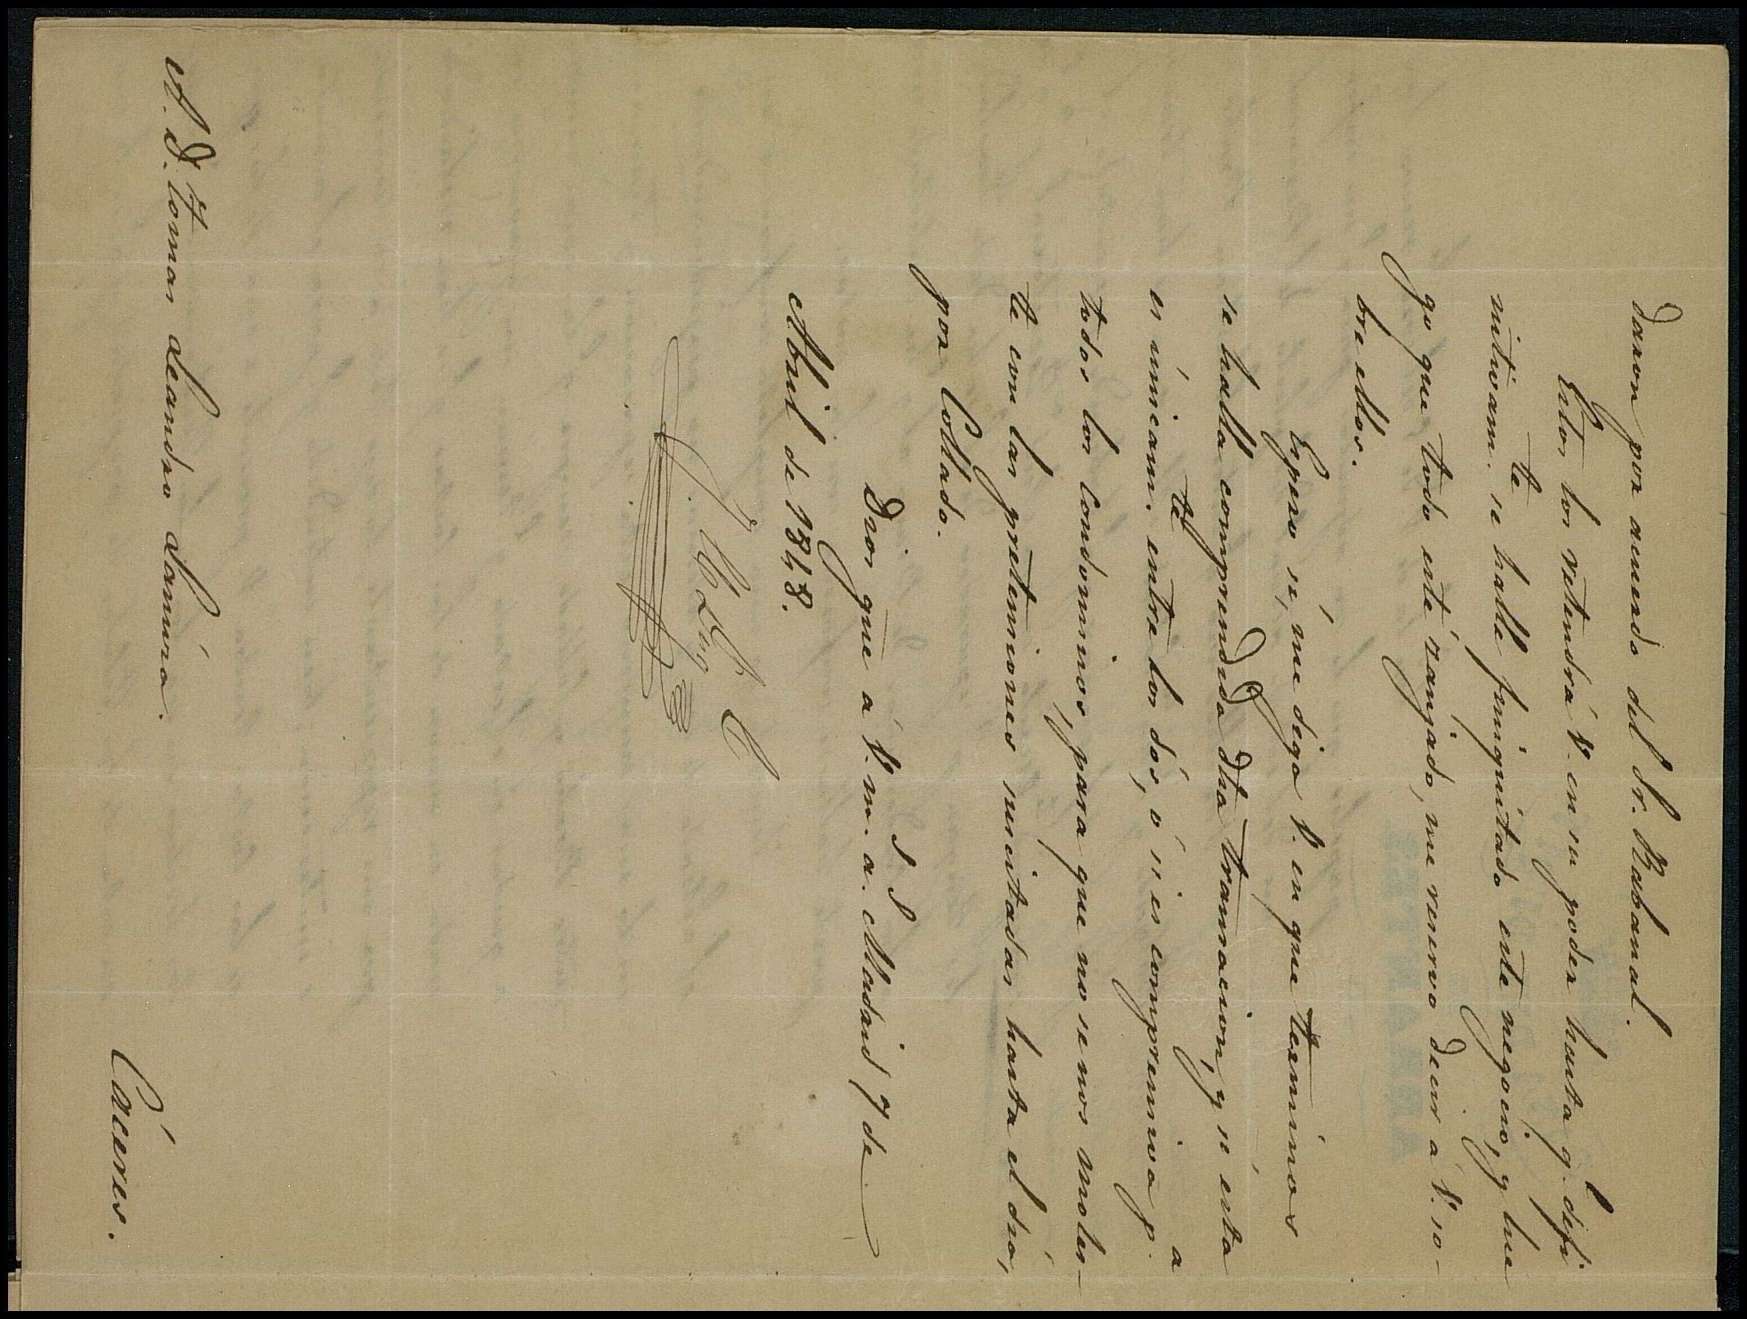 daron por acuerdo del Sr. Rabanal.
Estos los retendrá V. en su poder hasta q.e defi-
nitivam.te se halle finiquitado este negocio, y lue
go que todo esté zanjado, me reservo decir á V. so-
bre ellos.
Espero sé, me diga V. en que términos
se halla comprendida dha transacion, y si ésta
es únicam.te entre los dós, ó si es comprensiva p.a
todos los condominos, para que no se nos moles-
te con las pretensiones suscitadas hasta el dia,
por Collado.
Dios gue á V. m. a. Madrid 7 de
Abril de 1848.
A. D.n Tomas Leandro Lamina.
Cáceres.